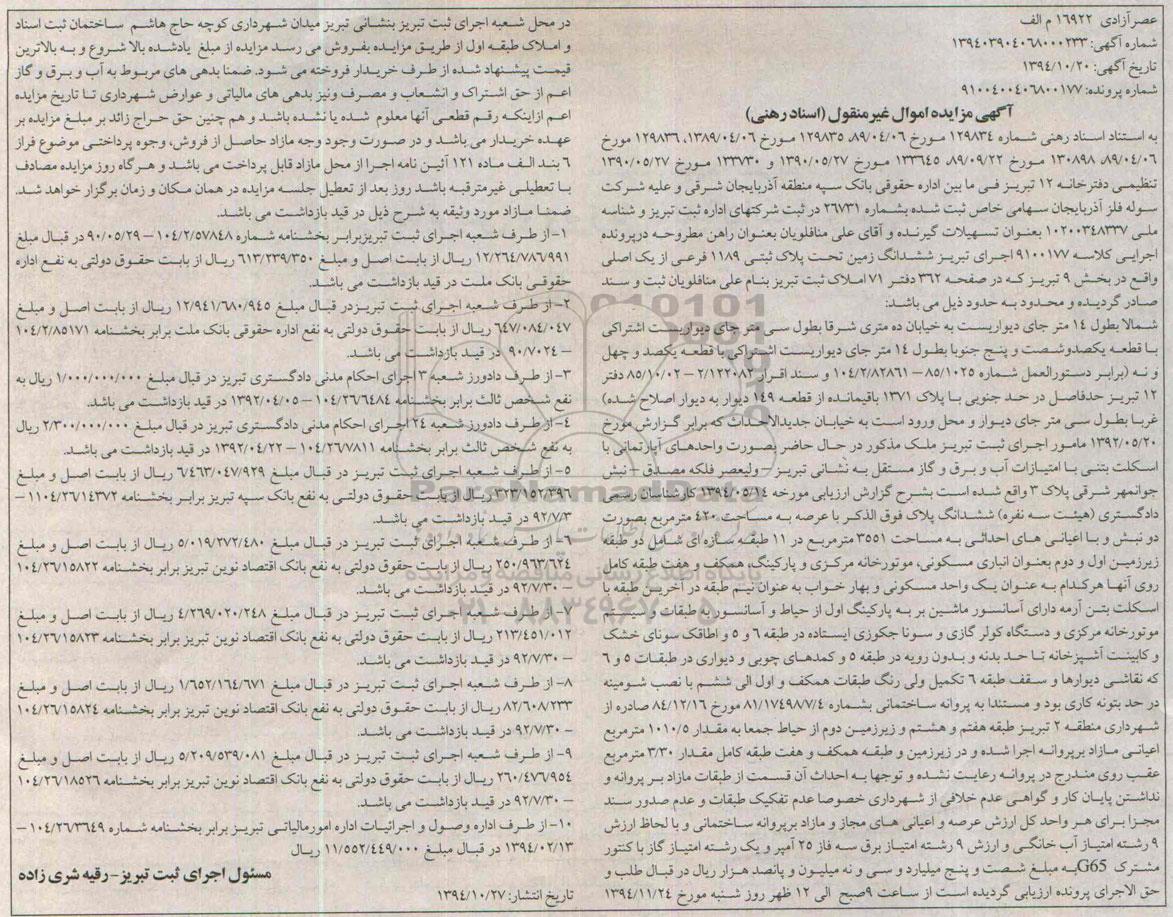 عصرآزادی ۱۶۹۲۲ م الف
شماره آگهی: ۱۳۹۴۰۳۹۰۴۰۶۸۰۰۰۲۳۳
تاریخ آگهی: ۱۳۹۴/۱۰/۲۰
شماره پرونده: ۹۱۰۰۴۰۰۴۰۶۸۰۰۱۷۷
آگهی مزایده اموال غیرمنقول (اسناد رهنی)
به استناد اسناد رهنی شماره ۱۲۹۸۳۴ مورخ ۸۹/۰۴/۰۶، ۱۲۹۸۳۵ مورخ ۱۳۸۹/۰۴/۰۶، ۱۲۹۸۳۶ مورخ
۸۹/۰۴/۰۶، ۱۳۰۸۹۸ مورخ ۸۹/۰۹/۲۲، ۱۳۳۶۴۵ مورخ ۱۳۹۰/۰۵/۲۷ و ۱۳۳۷۳۰ مورخ ۱۳۹۰/۰۵/۲۷
تنظیمی دفترخانه ۱۲ تبریز فی ما بین اداره حقوقی بانک سپه منطقه آذربایجان شرقی و علیه شرکت
سوله فلز آذربایجان سهامی خاص ثبت شده بشماره ۲۶۷۳۱ در ثبت شرکتهای اداره ثبت تبریز و شناسه
ملی ۱۰۲۰۰۳۴۸۳۳۷ بعنوان تسهیلات گیرنده و آقای علی منافلویان بعنوان راهن مطروحه درپرونده
اجرایی کلاسه ۹۱۰۰۱۷۷ اجرای تبریز ششدانگ زمین تحت پلاک ثبتی ۱۱۸۹ فرعی از یک اصلی
واقع در بخش ۹ تبریز که در صفحه ۳۶۲ دفتر ۷۱ املاک ثبت تبریز بنام علی منافلویان ثبت و سند
صادر گردیده و محدود به حدود ذیل می باشد:
شمالا بطول ۱۴ متر جای دیواریست به خیابان ده متری شرقا بطول سی متر جای دیواریست اشتراکی
با قطعه یکصدوشصت و پنج جنوبا بطول ۱۴ متر جای دیواریست اشتراکی با قطعه یکصد و چهل
و نه (برابر دستورالعمل شماره ۸۵/۱۰۲۵ – ۱۰۴/۲/۸۲۸۶۱ و سند اقرار ۲/۱۲۲۰۸۲ – ۸۵/۱۰/۰۲ دفتر
۱۲ تبریز حدفاصل در حد جنوبی با پلاک ۱۳۷۱ باقیمانده از قطعه ۱۴۹ دیوار به دیوار اصلاح شده)
غربا بطول سی متر جای دیوار و محل ورود است به خیابان جدیدالاحداث که برابر گزارش مورخ
۱۳۹۲/۰۵/۲۰ مامور اجرای ثبت تبریز ملک مذکور در حال حاضر بصورت واحدهای آپارتمانی با
اسکلت بتنی با امتیازات آب و برق و گاز مستقل به نشانی تبریز – ولیعصر فلکه مصدق – نبش
جوانمهر شرقی پلاک ۳ واقع شده است بشرح گزارش ارزیابی مورخه ۱۳۹۴/۰۵/۱۴ کارشناسان رسمی
دادگستری (هیئت سه نفره) ششدانگ پلاک فوق الذکر با عرصه به مساحت ۴۲۰ مترمربع بصورت
دو نبش و با اعیانی های احداثی به مساحت ۳۵۵۱ مترمربع در ۱۱ طبقه سازه ای شامل دو طبقه
زیرزمین اول و دوم بعنوان انباری مسکونی، موتورخانه مرکزی و پارکینگ، همکف و هفت طبقه کامل
روی آنها هرکدام به عنوان یک واحد مسکونی و بهار خواب به عنوان نیم طبقه در آخرین طبقه با
اسکلت بتن آرمه دارای آسانسور ماشین بر به پارکینگ اول از حیاط و آسانسور به طبقات و سیستم
موتورخانه مرکزی و دستگاه کولر گازی و سونا جکوزی ایستاده در طبقه ۶ و ۵ و اطاقک سونای خشک
و کابینت آشپزخانه تا حد بدنه و بدون رویه در طبقه ۵ و کمدهای چوبی و دیواری در طبقات ۵ و ۶
که نقاشی دیوارها و سقف طبقه ۶ تکمیل ولی رنگ طبقات همکف و اول الی ششم با نصب شومینه
در حد بتونه کاری بود و مستندا به پروانه ساختمانی بشماره ۸۱/۱۷۴۹۸۷/۴ مورخ ۸۴/۱۲/۱۶ صادره از
شهرداری منطقه ۲ تبریز طبقه هفتم و هشتم و زیرزمین دوم از حیاط جمعا به مقدار ۱۰۱۰/۵ مترمربع
اعیانی مازاد برپروانه اجرا شده و در زیرزمین و طبقه همکف و هفت طبقه کامل مقدار ۳/۳۰ مترمربع
عقب روی مندرج در پروانه رعایت نشده و توجها به احداث آن قسمت از طبقات مازاد بر پروانه و
نداشتن پایان کار و گواهی عدم خلافی از شهرداری خصوصا عدم تفکیک طبقات و عدم صدور سند
مجزا برای هر واحد کل ارزش عرصه و اعیانی های مجاز و مازاد برپروانه ساختمانی و با لحاظ ارزش
۹ رشته امتیاز آب خانگی و ارزش ۹ رشته امتیاز برق سه فاز ۲۵ آمپر و یک رشته امتیاز گاز با کنتور
مشترک G65به مبلغ شصت و پنج میلیارد و سی و نه میلیون و پانصد هزار ریال در قبال طلب و
حق الاجرای پرونده ارزیابی گردیده است از ساعت ۹صبح الی ۱۲ ظهر روز شنبه مورخ ۱۳۹۴/۱۱/۲۴
در محل شعبه اجرای ثبت تبریز بنشانی تبریز میدان شهرداری کوچه حاج هاشم ساختمان ثبت اسناد
و املاک طبقه اول از طریق مزایده بفروش می رسد مزایده از مبلغ یادشده بالا شروع و به بالاترین
قیمت پیشنهاد شده از طرف خریدار فروخته می شود. ضمنا بدهی های مربوط به آب و برق و گاز
اعم از حق اشتراک و انشعاب و مصرف ونیز بدهی های مالیاتی و عوارض شهرداری تا تاریخ مزایده
اعم ازاینکه رقم قطعی آنها معلوم شده یا نشده باشد و هم چنین حق حراج زائد بر مبلغ مزایده بر
عهده خریدار می باشد و در صورت وجود وجه مازاد حاصل از فروش، وجوه پرداختی موضوع فراز
۶ بند الف ماده ۱۲۱ آئین نامه اجرا از محل مازاد قابل پرداخت می باشد و هرگاه روز مزایده مصادف
با تعطیلی غیرمترقبه باشد روز بعد از تعطیل جلسه مزایده در همان مکان و زمان برگزار خواهد شد.
ضمنا مازاد مورد وثیقه به شرح ذیل در قید بازداشت می باشد.
۱- از طرف شعبه اجرای ثبت تبریزبرابر بخشنامه شماره ۱۰۴/۲/۵۷۸۴۸ – ۹۰/۰۵/۲۹ در قبال مبلغ
۱۲/۲۶۴/۷۸۶/۹۹۱ ریال از بابت اصل و مبلغ ۶۱۳/۲۳۹/۳۵۰ ریال از بابت حقوق دولتی به نفع اداره
حقوقی بانک ملت در قید بازداشت می باشد.
۲- از طرف شعبه اجرای ثبت تبریزدر قبال مبلغ ۱۲/۹۴۱/۶۸۰/۹۴۵ ریال از بابت اصل و مبلغ
۶۴۷/۰۸۴/۰۴۷ ریال از بابت حقوق دولتی به نفع اداره حقوقی بانک ملت برابر بخشنامه ۱۰۴/۲/۸۵۱۷۱
– ۹۰/۷۰۲۴ در قید بازداشت می باشد.
۳- از طرف دادورز شعبه ۳ اجرای احکام مدنی دادگستری تبریز در قبال مبلغ ۱/۰۰۰/۰۰۰/۰۰۰ ریال به
نفع شخص ثالث برابر بخشنامه ۱۰۴/۲۶/۶۴۸۴ – ۱۳۹۲/۰۴/۰۵ در قید بازداشت می باشد.
۴- از طرف دادورز شعبه ۲۴ اجرای احکام مدنی دادگستری تبریز در قبال مبلغ ۲/۳۰۰/۰۰۰/۰۰۰ ریال
به نفع شخص ثالث برابر بخشنامه ۱۰۴/۲۶/۷۸۱۱ – ۱۳۹۲/۰۴/۲۲ در قید بازداشت می باشد.
۵- از طرف شعبه اجرای ثبت تبریز در قبال مبلغ ۶/۴۶۳/۰۴۷/۹۲۹ ریال از بابت اصل و مبلغ
۳۲۳/۱۵۲/۳۹۶ ریال از بابت حقوق دولتی به نفع بانک سپه تبریز برابر بخشنامه ۱۱۰۴/۲۶/۱۱۴۳۷۲ –
۹۲/۷/۳ در قید بازداشت می باشد.
۶- از طرف شعبه اجرای ثبت تبریز در قبال مبلغ ۵/۰۱۹/۲۷۲/۴۸۰ ریال از بابت اصل و مبلغ
۲۵۰/۹۶۳/۶۲۴ ریال از بابت حقوق دولتی به نفع بانک اقتصاد نوین تبریز برابر بخشنامه ۱۰۴/۲۶/۱۵۸۲۲
– ۹۲/۷/۳۰ در قید بازداشت می باشد.
۷- از طرف شعبه اجرای ثبت تبریز در قبال مبلغ ۴/۲۶۹/۰۲۰/۲۴۸ ریال از بابت اصل و مبلغ
۲۱۳/۴۵۱/۰۱۲ ریال از بابت حقوق دولتی به نفع بانک اقتصاد نوین تبریز برابر بخشنامه ۱۰۴/۲۶/۱۵۸۲۳
– ۹۲/۷/۳۰ در قید بازداشت می باشد.
۸- از طرف شعبه اجرای ثبت تبریز در قبال مبلغ ۱/۶۵۲/۱۶۴/۶۷۱ ریال از بابت اصل و مبلغ
۸۲/۶۰۸/۲۳۳ ریال از بابت حقوق دولتی به نفع بانک اقتصاد نوین تبریز برابر بخشنامه ۱۰۴/۲۶/۱۵۸۲۴
– ۹۲/۷/۳۰ در قید بازداشت می باشد.
۹- از طرف شعبه اجرای ثبت تبریز در قبال مبلغ ۵/۲۰۹/۵۳۹/۰۸۱ ریال از بابت اصل و مبلغ
۲۶۰/۴۷۶/۹۵۴ ریال از بابت حقوق دولتی به نفع بانک اقتصاد نوین تبریز برابر بخشنامه ۱۰۴/۲۶/۱۸۵۲۶
– ۹۲/۷/۳۰ در قید بازداشت می باشد.
۱۰- از طرف اداره وصول و اجرائیات اداره امورمالیاتی تبریز برابر بخشنامه شماره ۱۰۴/۲۶/۳۶۴۹ –
۱۳۹۴/۰۲/۱۳ در قبال مبلغ ۱۱/۵۵۲/۴۴۹/۰۰۰ ریال
مسئول اجرای ثبت تبریز – رقیه شری زاده
تاریخ انتشار: ۱۳۹۴/۱۰/۲۷
ParsNamadData
پایگاه اطلاع رسانی مناقصه و مزایده
۰۲۱-۸۸۳۴۹۶۷۰-۵